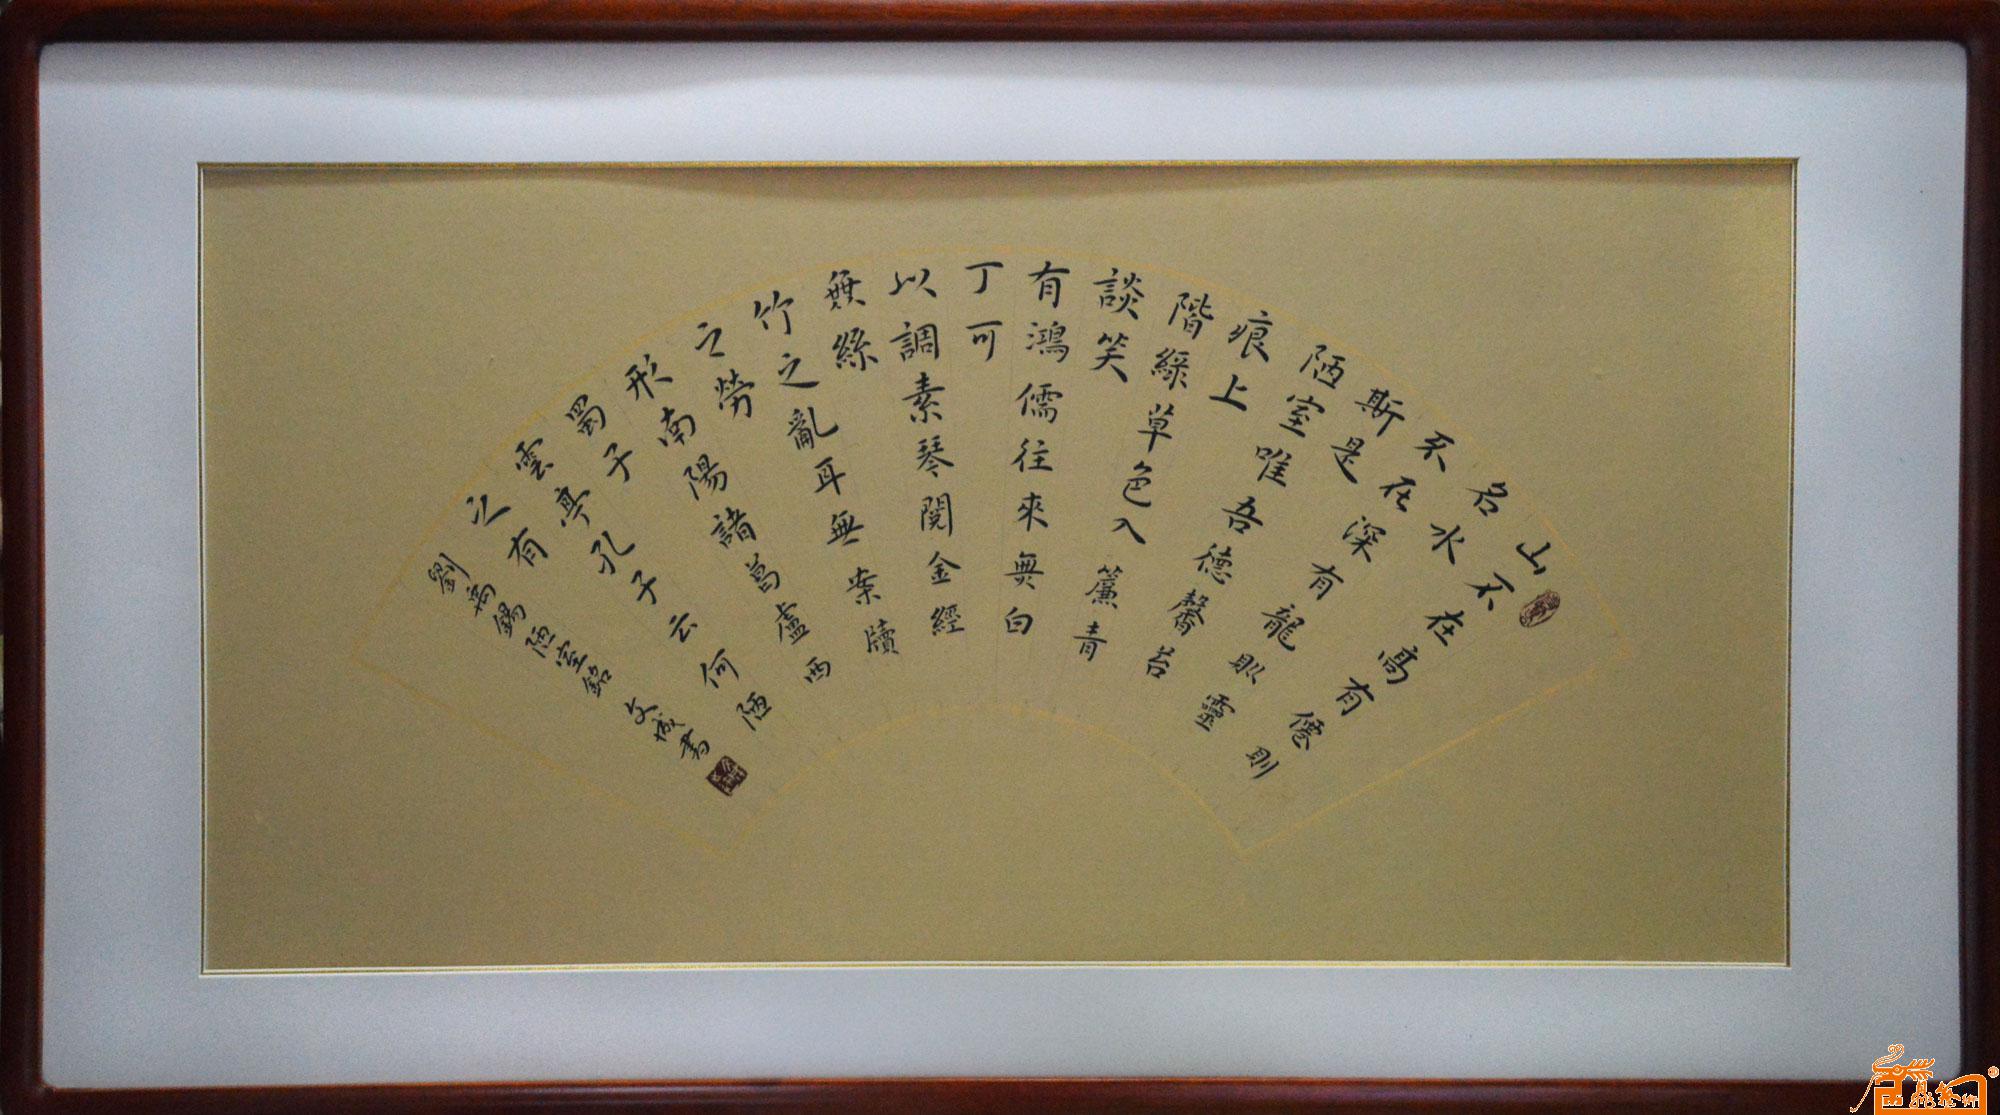 山不在高有僊則
名水
不在深有龍則靈
斯是
陋室唯吾德馨苔
痕上
階綠草色入簾青
談笑
有鴻儒往來無白
丁可
以調素琴閱金經
無絲
竹之亂耳無案牘
之勞
形南陽諸葛盧西
蜀子
雲亭孔子云何陋
之有
劉禹錫陋室銘 文城書